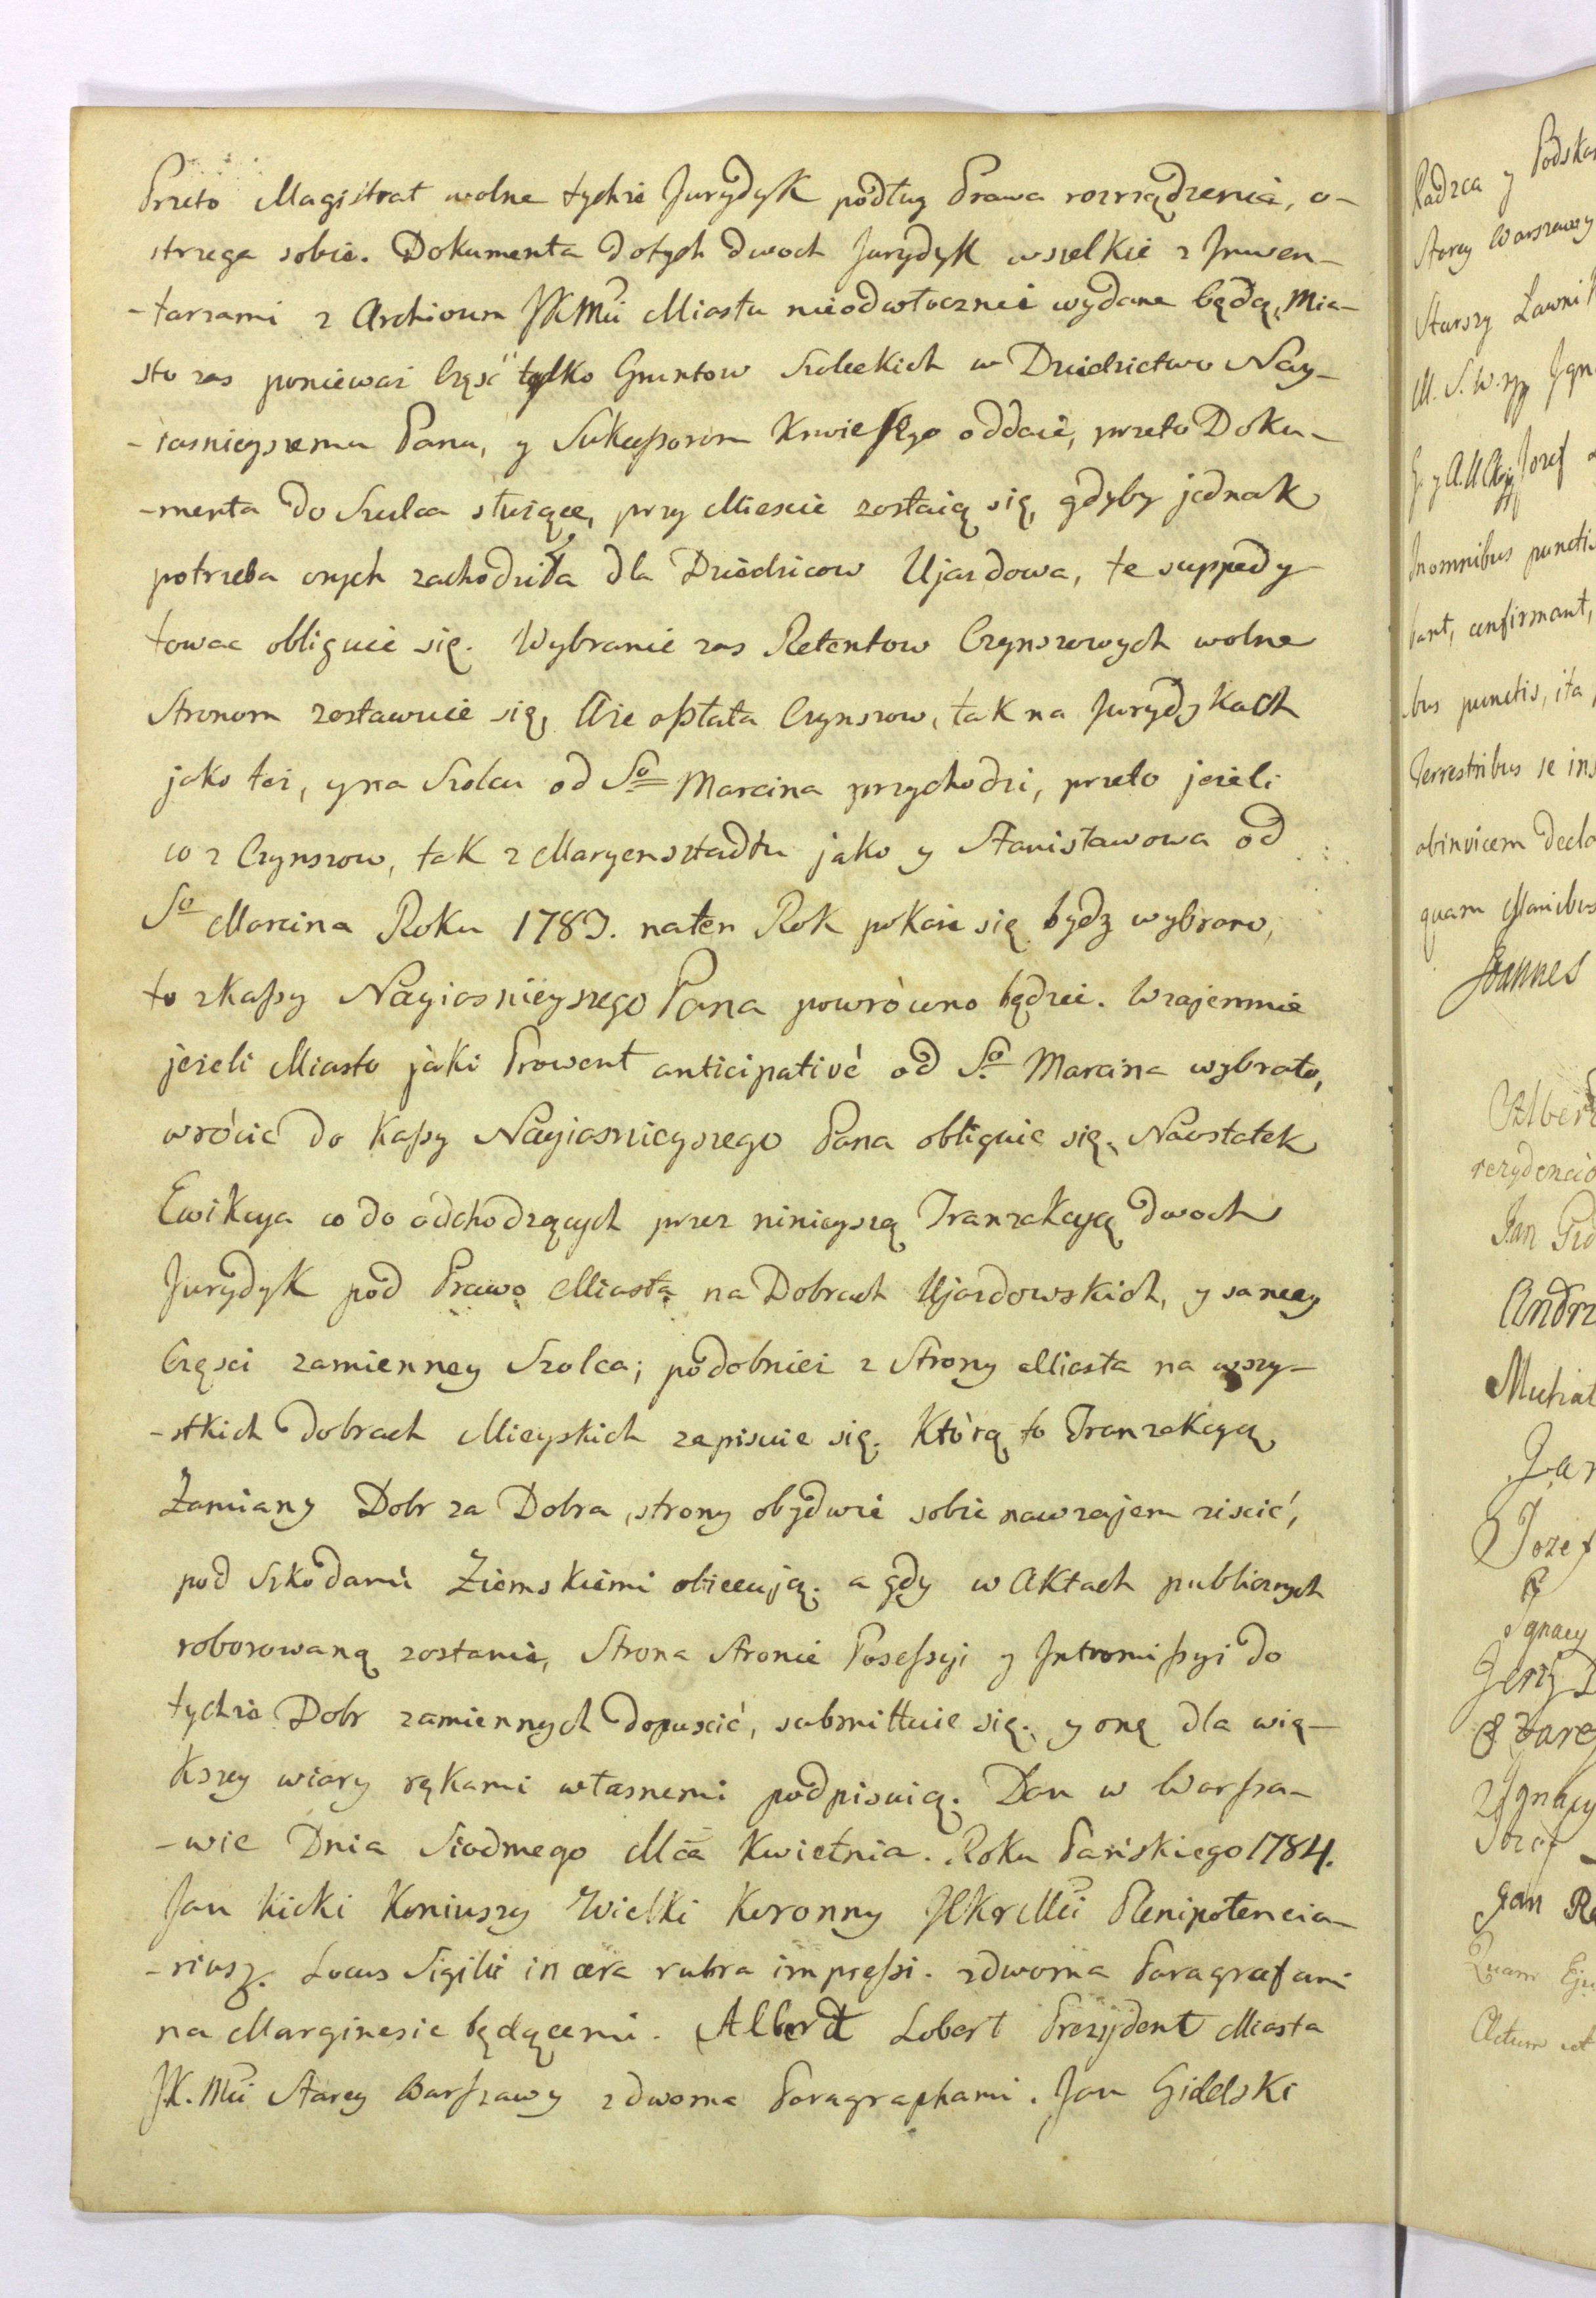 Przeto Magistrat wolne tychże Jurydyk podług Prawa rozrządzenie, o-
strzega sobie. Dokumenta do tych dwoch Jurydyk wszelkie z Inwen-
-tarzami z Archivum JKMci Miastu nieodwłocznie wydane będą, Mia-
sto zas ponieważ Częsć tylko Gruntow Szoleckich w Dziedzictwo Nay-
-iasnieyszemu Panu, y Sukceßorom Krwie Jego oddaie, przeto Doku-
-menta do Szulca służące, przy Miescie zostaią się, gdyby jednak
potrzeba onych zachodziła dla Dziedzicow Ujazdowa, te suppedy-
towac obliguie się. Wybranie zas Retentow Czynszowych wolne
Stronom zostawuie się, Aże opłata Czynszow, tak na Jurydykach
jako też, y na Szolcu od So Marcina przychodzi, przeto jeżeli
co z Czynszow, tak z Maryensztadtu jako y Stanisławowa od
So Marcina Roku 1783. na ten Rok pokaże się bydz wybrano,
to z Kaßy Nayiasnieyszego Pana powrócono będzie. Wzajemnie
jeżeli Miasto jaki Prowent anticipativé od So Marcina wybrało,
wrócić do Kaßy Nayiasnieyszego Pana obliguie się. Naostatek
Ewikcya co do odchodzących przez ninieyszą Tranzakcyą dwoch
Jurydyk pod Prawo Miasta na Dobrach Ujazdowskich, y samey
Częsci zamienney Szolca; podobnież z Strony Miasta na wszy-
-stkich Dobrach Mieyskich zapisuie się. Którą to Tranzakcyą
Zamiany Dobr za Dobra, strony obydwie sobie nawzajem ziscić,
pod Szkodami Ziemskiemi obiecują. a gdy w Aktach publicznych
roborowaną zostanie, Strona Stronie Poseßyi y Intromißyi do
tychże Dobr zamiennych dopuscić, submittuie się. y onę dla wię-
kszey wiary rękami własnemi podpisuią. Dan w Warsza-
-wie Dnia Siodmego Mca Kwietnia. Roku Pańskiego 1784.
Jan Kicki Koniuszy Wielki Koronny JKrMci Plenipotencia-
-riusz. Locus Sigilii in cera rubra impreßi. z dwoma Paragrafami
na Marginesie będącemi. Alberdt Lobert Prezydent Miasta
JK. Mci Starey Warszawy z dwoma Paragraphami. Jan Gidelski
Radzca y
Starey Warszawy
Starszy
Jozef
In omnibus
confirmant,
bus punctis, ita
Terrestribus se
abinvicem
quam Manibus
Joannes
Jan
Andrz
Jan
Jozef
Ignacy
Jerzy
Ignacy
Jozef
Jan
Quam
Actum